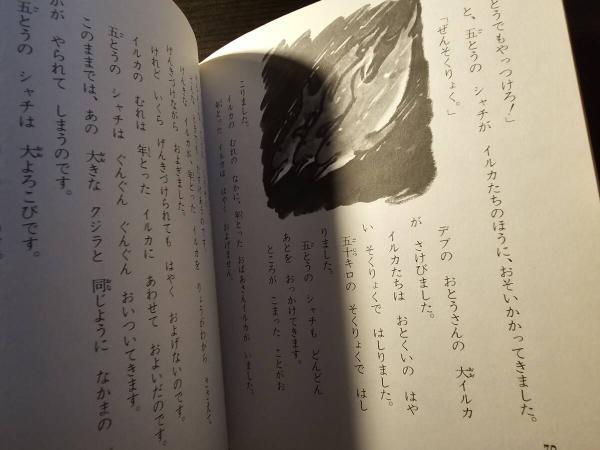 とうでもやっつけろ！」
と、五とうの シャチが イルカたちのほうに、おそいかかってきました。
「ぜんそくりょく。」
デブの おとうさんの 大イルカ
が さけびました。
イルカたちは おとくいの はや
い そくりょくで はしりました。
五十キロの そくりょくで はし
りました。
五とうの シャチも どんどん
あとを おっかけてきます。
ところが こまった ことがお
こりました。
イルカの むれの なかに、年とった おばあさんイルカが いました。
年とった イルカは はやく およげません。
げんきな イルカが、年とった イルカを りょうがわから
げんきづけながら およぎました。
けれど いくら げんきづけられても はやく およげないのです。
イルカの むれは 年とった イルカに あわせて およいだのです。
五とうの シャチは ぐんぐん ぐんぐん おいついてきます。
このままでは、あの 大きな クジラと 同じように なかまの
が やられて しまうのです。
五とうの シャチは 大よろこびです。